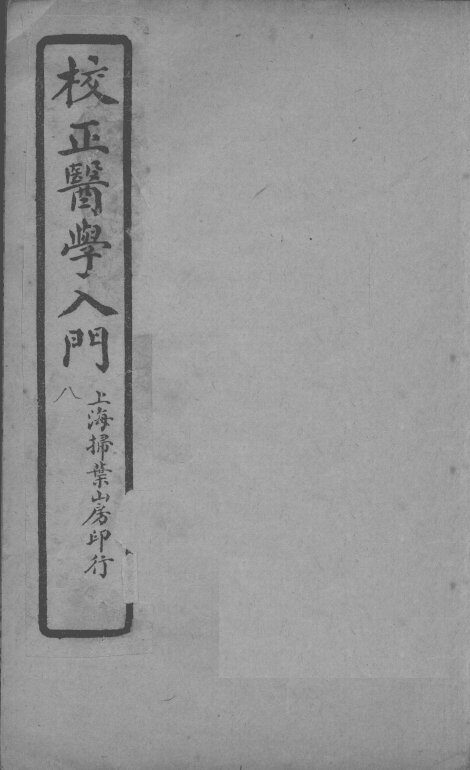 校正醫學入門
八
上海掃葉山房印行